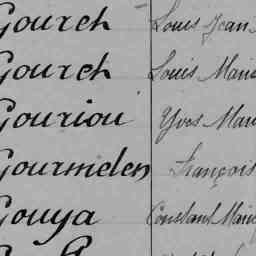 Gourch Louis Jean
Gourch Louis Marie
Gouriou Yves Marie
Gourmelen François
Gouya Constant Marie